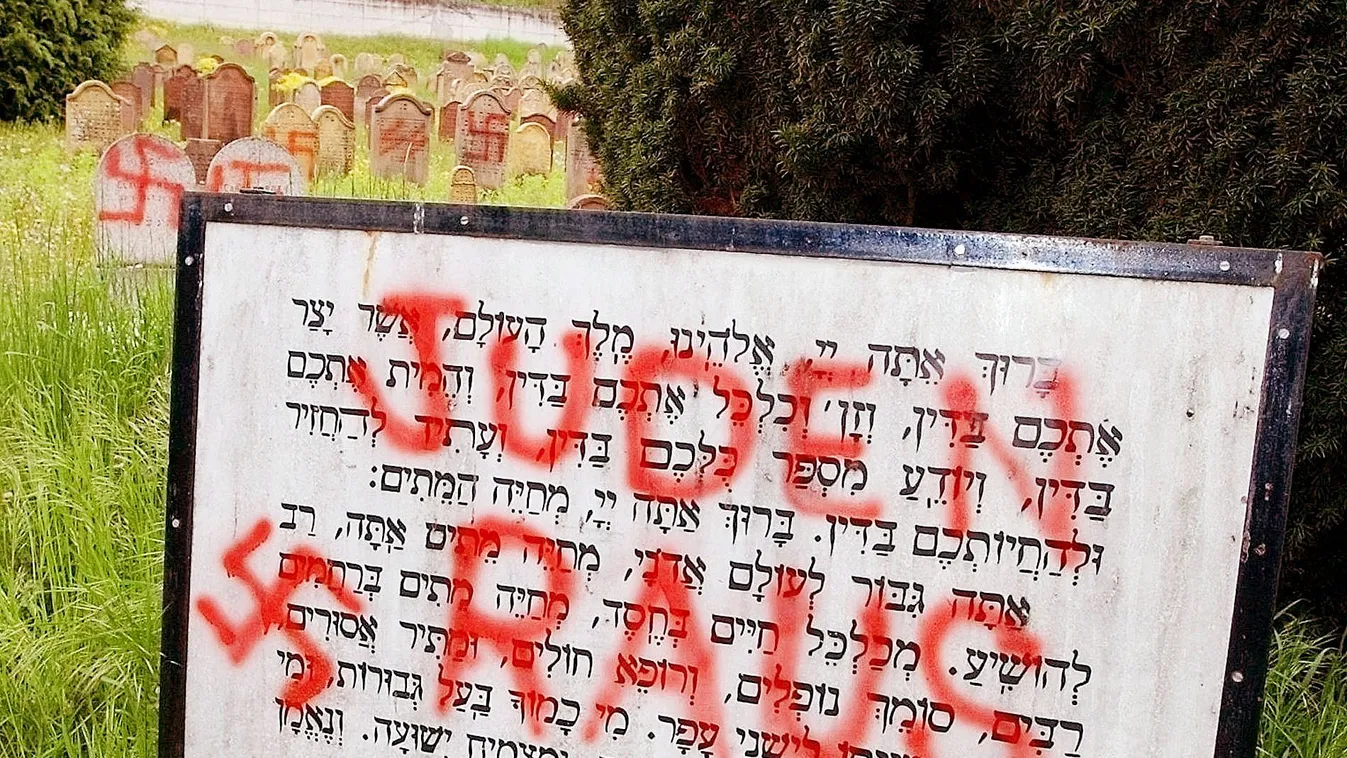 בָּרוּךְ אַתָּה יְיָ, אֱלֹהֵינוּ, מֶלֶךְ הָעוֹלָם, אֲשֶׁר יָצַר
אֶתְכֶם בַּדִּין, וְזָן וְכִלְכֵּל אֶתְכֶם בַּדִּין, וְהֵמִית אֶתְכֶם
בַּדִּין, וְיוֹדֵעַ מִסְפַּר כֻּלְּכֶם בַּדִּין, וְעָתִיד לְהַחֲזִיר
וּלְהַחֲיוֹתְכֶם בַּדִּין. בָּרוּךְ אַתָּה יְיָ, מְחַיֵּה הַמֵּתִים:
אַתָּה גִּבּוֹר לְעוֹלָם אֲדֹנָי, מְחַיֵּה מֵתִים אַתָּה, רַב
לְהוֹשִׁיעַ. מְכַלְכֵּל חַיִּים בְּחֶסֶד, מְחַיֵּה מֵתִים בְּרַחֲמִים
רַבִּים, סוֹמֵךְ נוֹפְלִים, וְרוֹפֵא חוֹלִים, וּמַתִּיר אֲסוּרִים,
לִישֵׁנֵי עָפָר. מִי כָמוֹךָ בַּעַל גְּבוּרוֹת, וּמִי
וּמַצְמִיחַ יְשׁוּעָה. וְנֶאֱמָן
JUDEN
RAUS